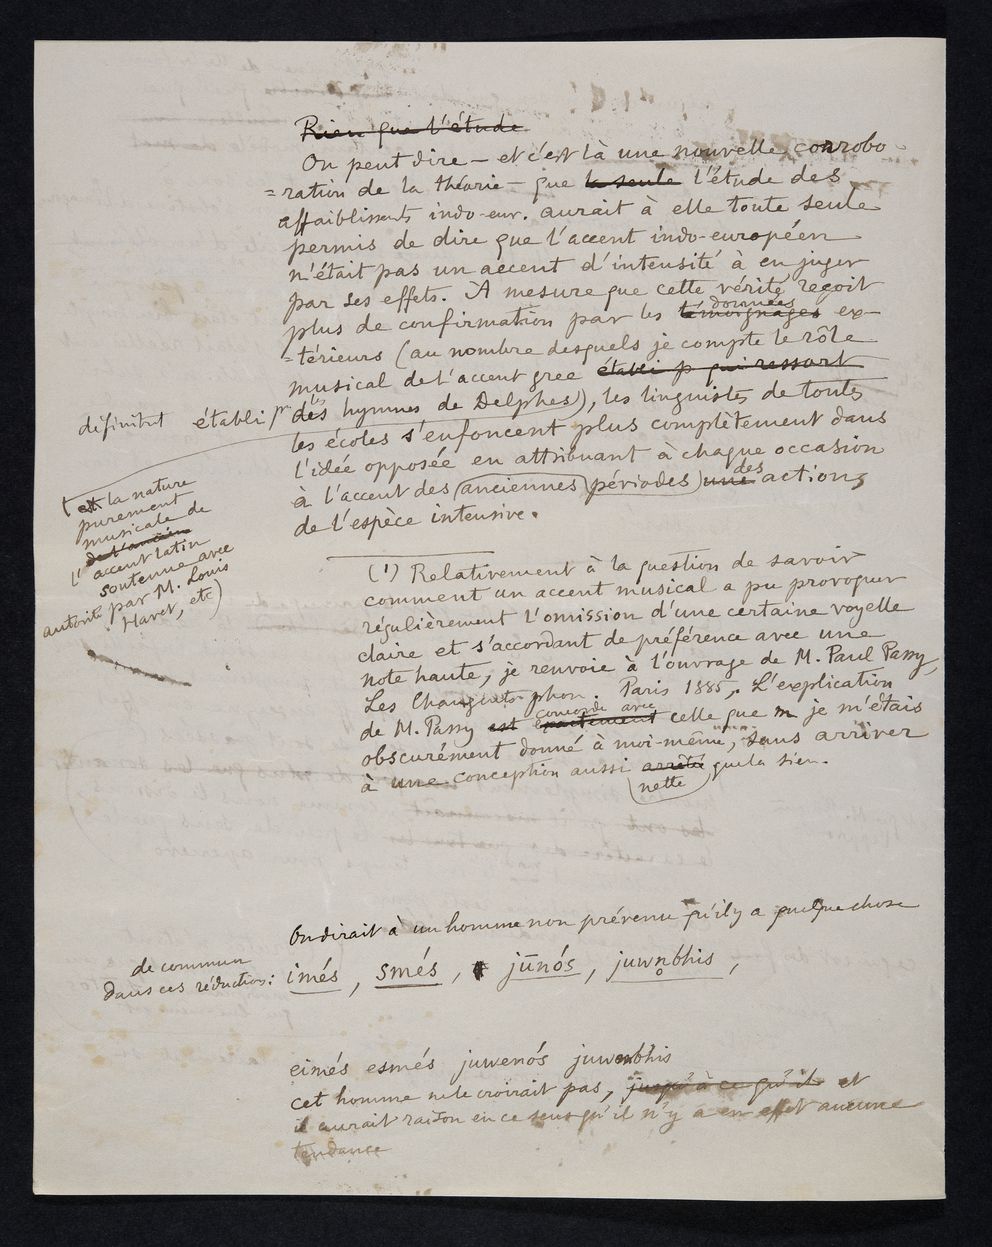 Rien que l'étude
On peut dire – et c'est là une nouvelle corrobo-
=ration de la théorie – que la seule l'étude des
affaiblissments indo-eur. aurait à elle toute seule
permis de dire que l'accent indo-européen
n'était pas un accent d'intensité à en juger
par ses effets. À mesure que cette vérité reçoit
données
plus de confirmation par les témoignages ex-
=térieurs (au nombre desquels je compte le rôle
musical de l'accent grec établi p qui ressort
définitnt établi pr les des hymnes de Delphes), les linguistes de toutes
les écoles s'enfoncent plus complètement dans
l'idée opposée en attribuant à chaque occasion
à l'accent des (anciennes périodes) une des actions
de l'espèce intensive.
(et la nature
purement
musicale de
de l'ancien
l'accent latin
soutenue avec
autorité par M. Louis
Havet, etc)
(1) Relativement à la question de savoir
comment un accent musical a pu provoquer
régulièrement l'omission d'une certaine voyelle
claire et s'accordant de préférence avec une
note haute, je renvoie à l'ouvrage de M. Paul Passy,
Les Changnts phon. Paris 1885. L'explication
concorde avec
de M. Passy est exactement celle que m je m'étais
obscurément donné à moi-même, sans arriver
à une conception aussi arrêté que la sien.
nette
On dirait à un homme non prévenu qu'il y a quelque chose
de commun
dans ces réductions: imés, smés, jūnós, juwn̥bhis,
eimés esmés juwenós juwenbhis
cet homme ne le croirait pas, jusqu'à ce qu'il et
il aurait raison en ce sens qu'il n'y a en effet aucune
tendance